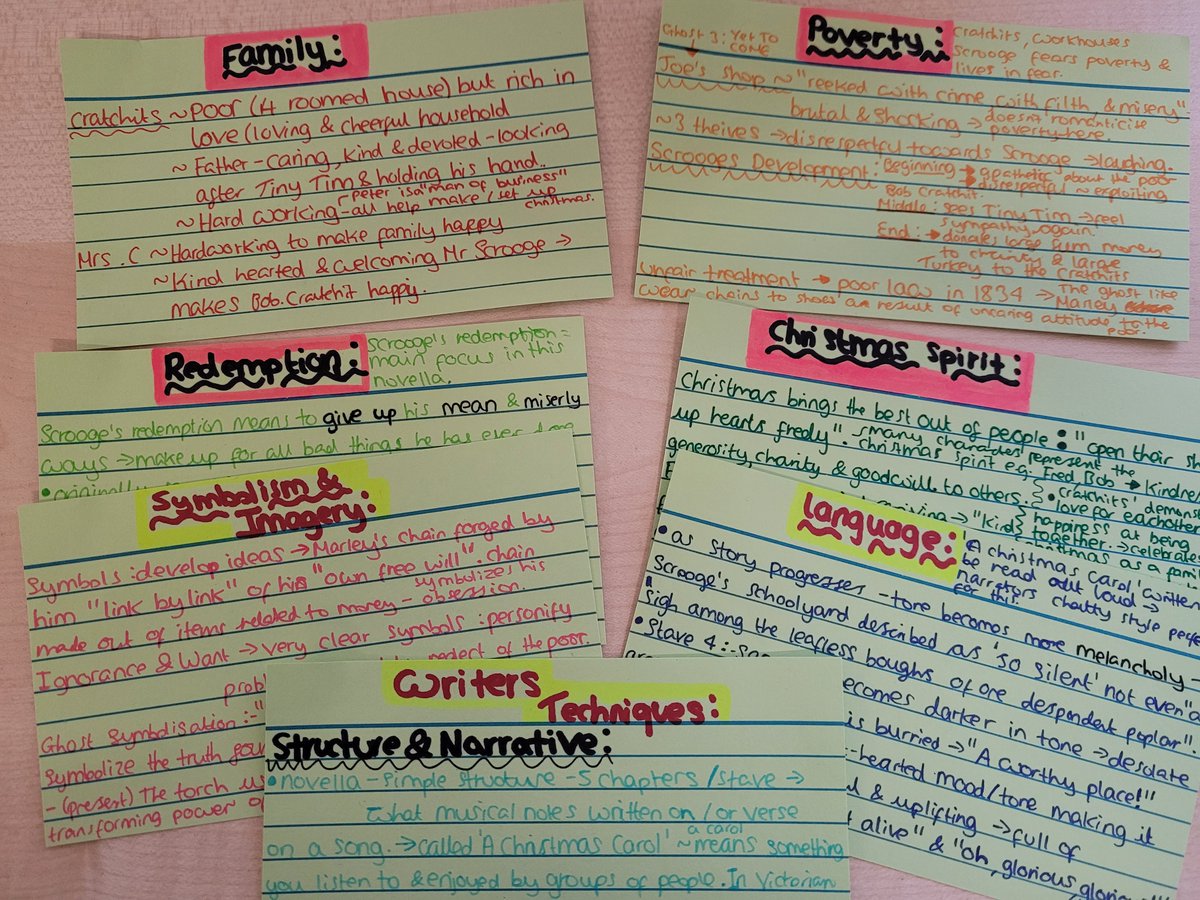 Family:
Cratchits ~ Poor (4 roomed house) but rich in
love (loving & cheerful household
~ Father - caring, kind & devoted - looking
after Tiny Tim & holding his hand..
Peter is a "man of business"
~ Hard working - all help make / set up
christmas.
Mrs. C ~ Hardworking to make family happy
~ Kind hearted & welcoming Mr Scrooge →
makes Bob. Cratchit happy.
Ghost 3: Yet To
COME
Poverty:
Cratchits, workhouses
Scrooge fears poverty &
lives in fear.
Joe's shop ~ "reeked with crime, with filth, & misery".
brutal & shocking → doesn't romanticise
poverty here.
~ 3 theives → disrespectful towards Scrooge → laughing.
Scrooges Development: Beginning → apathetic about the poor
→ disrespectful ~ exploiting
Bob Cratchit.
Middle: sees Tiny Tim → feel
sympathy again.
End: → donates large sum money
to charity & large
Turkey to the Cratchits
unfair treatment → poor law in 1834 → The ghost like
Marley
wear chains to shoes' are result of uncaring attitude to the
poor.
Redemption:
Scrooge's redemption =
main focus in this
novella.
Scrooge's redemption means to give up his mean & miserly
ways → make up for all bad things he has ever done
• originally
Christmas Spirit:
Christmas brings the best out of people: "open their sh
up hearts freely". many characters represent the
christmas spirit e.g. Fred Bob → Kindne
generosity, charity & goodwill to others. • Cratchits' demons
love for eachother
happiness at being
→ "Kind together → celebrate
christmas as a famil
Symbolism &
Imagery:
Symbols: develop ideas → Marley's chain forged by
him "link by link" of his "own free will". chain
symbolizes his
made out of items related to money - obsession.
Ignorance & Want → very clear symbols: personify
neglect of the poor.
prob
Ghost Symbolisation: - "
Symbolize the truth
- (present) The torch
transforming power of
Language:
'A christmas Carol' written
be read out loud →
narrators chatty style perfe
for this.
• as story progresses - tone becomes more melancholy -
Scrooge's schoolyard described as 'so silent' not even "a
sigh among the leafless boughs of one despondent poplar"
• Stave 4: -
becomes darker in tone → desolate
is burried → "A worthy place!"
-hearted mood/tone making it
& uplifting → full of
alive" & "oh, glorious, glorio
Writers
Techniques:
Structure & Narrative:
• novella - simple structure - 5 chapters / stave →
what musical notes written on / or verse
on a song. → called 'A Christmas Carol' ~ a carol means something
you listen to & enjoyed by groups of people. In Victorian